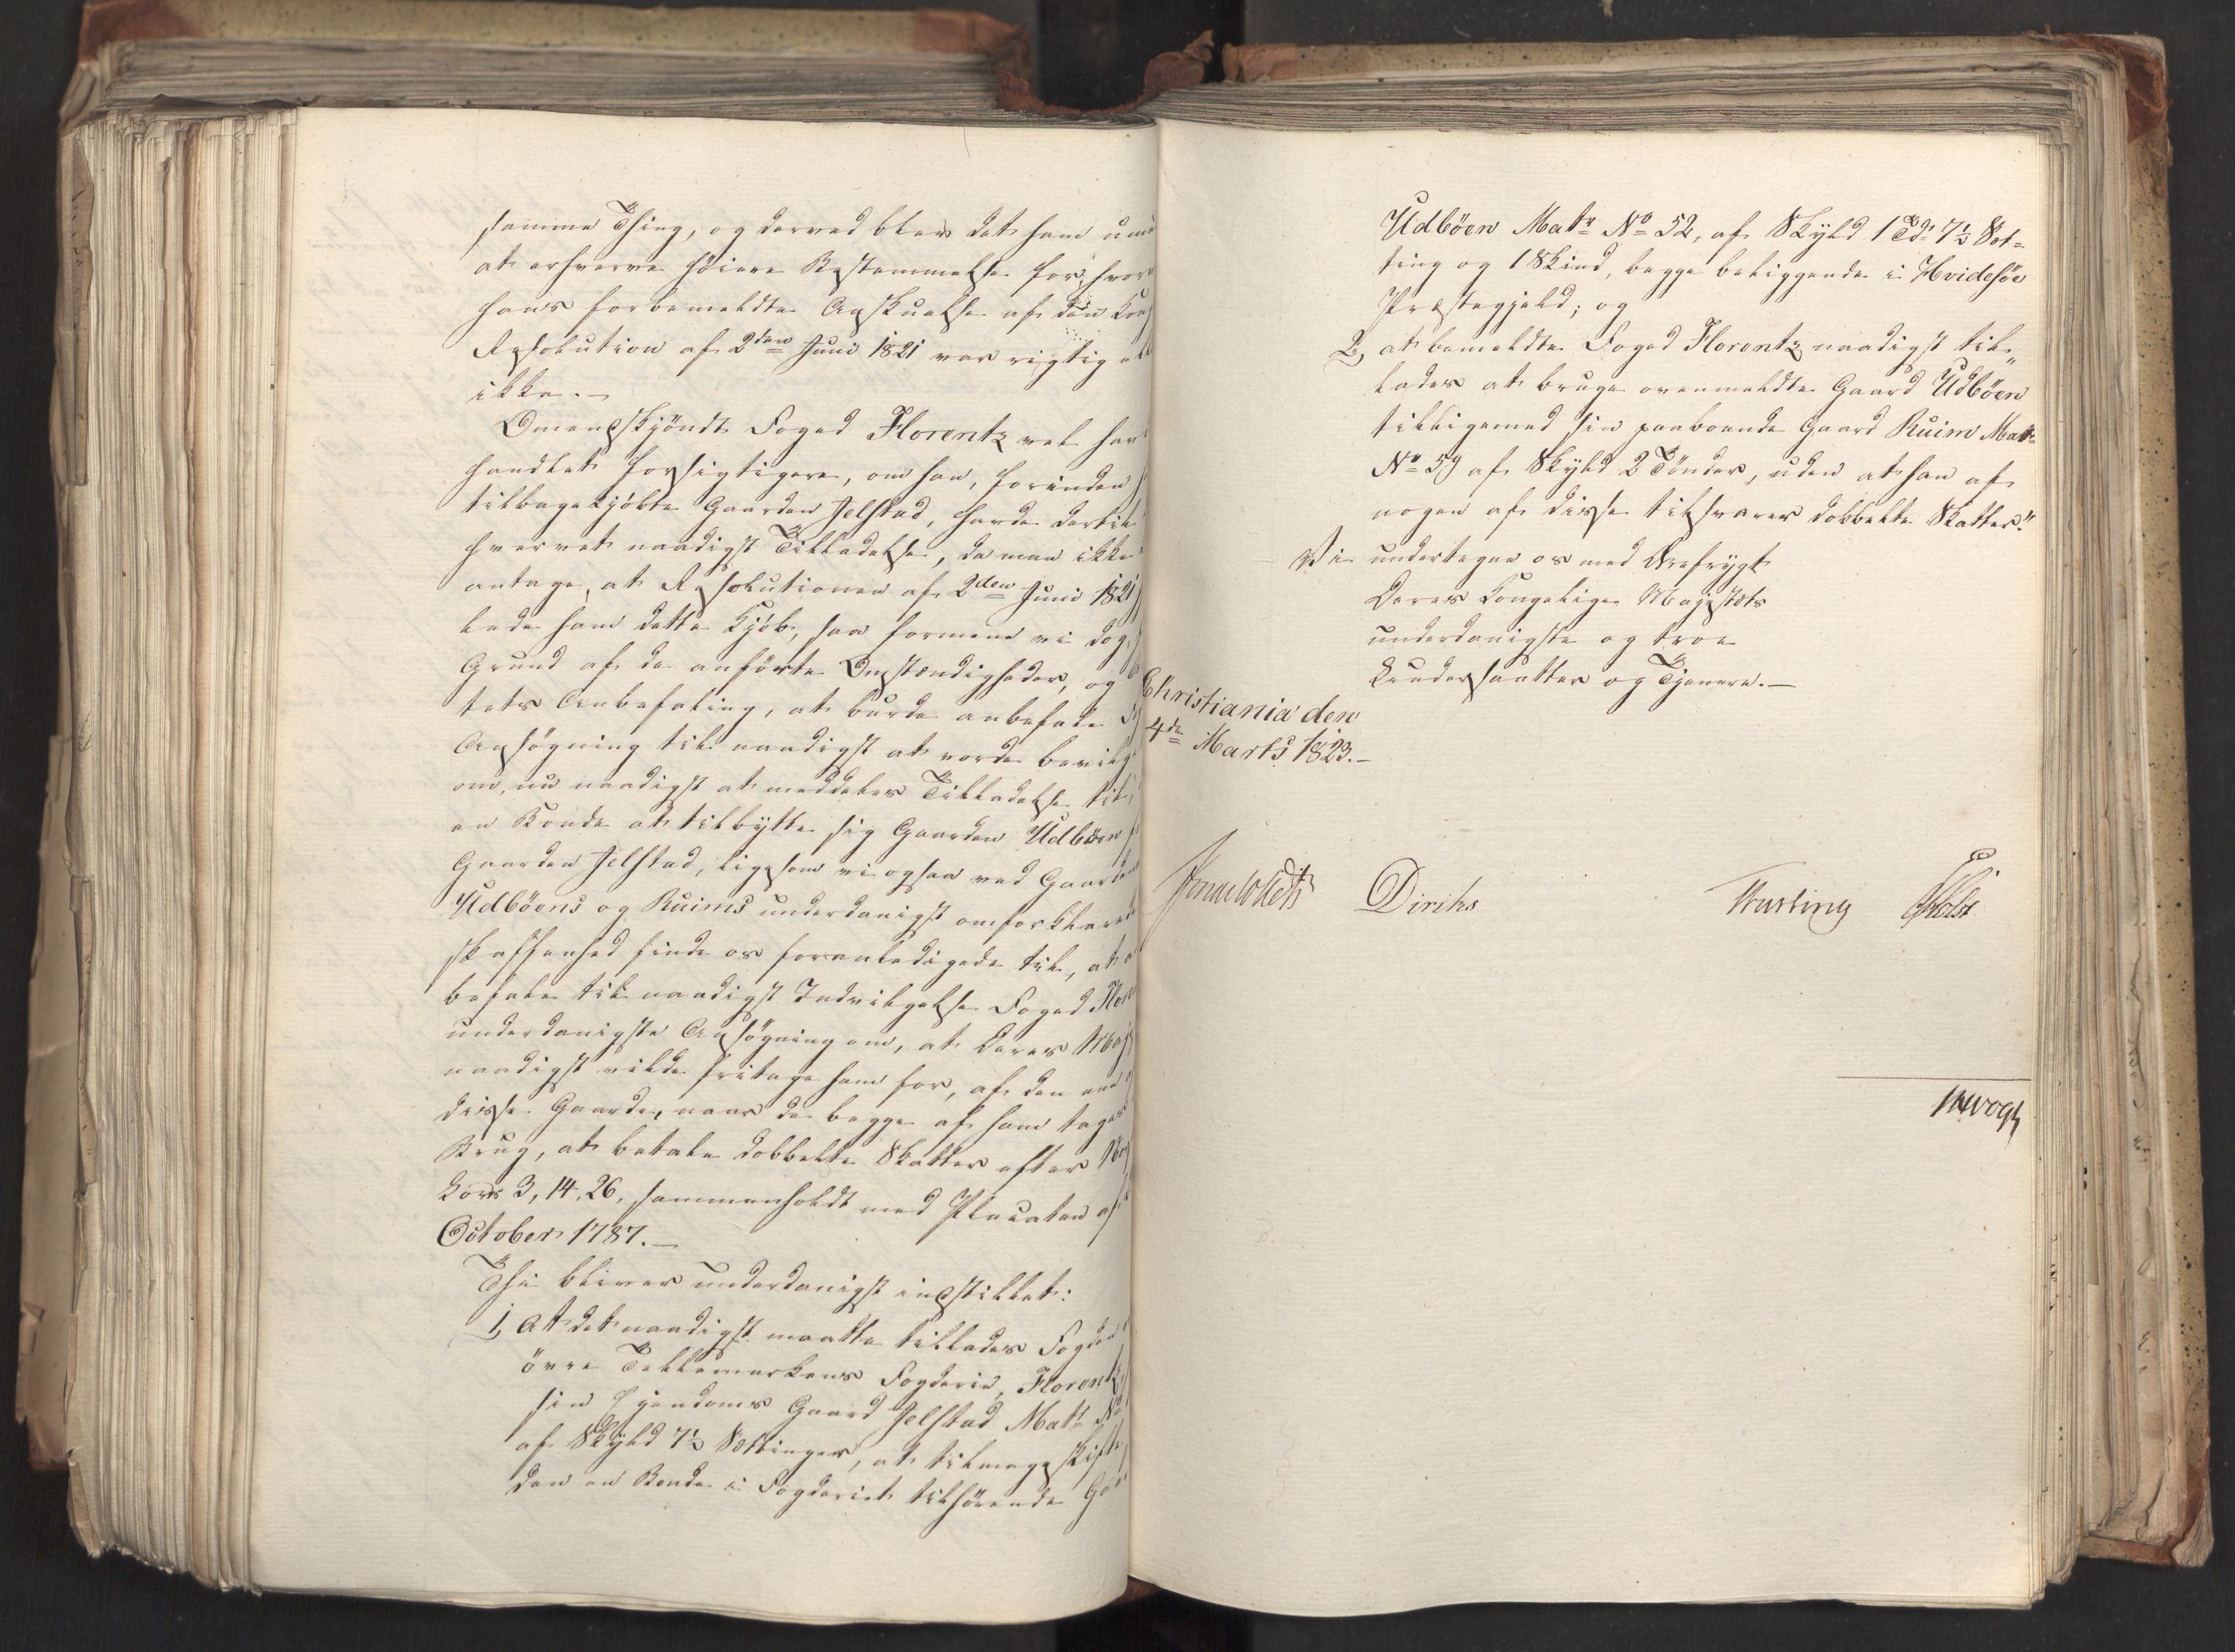 samme Thing, og derved blev det ham
at erhverve höiere Bestemmelse for, hvor
hans forbemeldte Anskuelse af den
Resolution af 2den Juni 1821 var rigtig
ikke. —
Omendskjöndt Foged Florentz vel
handlet forsigtigere, om han, forinden
tilbagekjöbte Gaarden Jelstad, havde dertil
hvervet naadigst Tilladelse, da man ikke
antage, at Resolutionen af 2den Juni 1821
lade ham dette Kjöb, saa formene vi dog,
Grund af de anförte Omstændigheder, og
tets Anbefaling, at burde anbefale
Ansögning til naadigst at vorde
om, nu naadigst at meddeles Tilladelse til,
en Bonde at tilbytte sig Gaarden Udböen
Gaarden Jelstad, ligesom vi ogsaa ved
Udböens og Ruims underdanigst omforklarede
skaffenhed finde os foranledigede til, at
befale til naadigst Indvilgelse Foged
underdanigste Ansögning om, at Deres
naadigst vilde fritage ham for, af den ene
disse Gaarde, naar de begge af ham tages
Brug, at betale dobbelte Skatter efter
Lovs 3, 14, 26, sammenholdt med Placaten af
October 1787. —
Thi bliver underdanigst indstillet:
1, At det naadigst maatte tillades Fogden
övre Tellemarkens Fogderie, Florentz,
sin Eiendoms Gaard Jelstad Matr No
af Skyld 7½ Sættinger, at tilmageskifte
den en Bonde i Fogderiet tilhörende
Udböen Matr No 52, af Skyld 1 Td 7½ Sæt=
ting og 1 Skind, begge beliggende i Hvidesöe
Præstegjeld; og
2, at bemeldte Foged Florentz naadigst til„
lades at bruge ovenmeldte Gaard Udböen
tilligemed sin paaboende Gaard Ruim Matr
No 59 af Skyld 2 Tönder, uden at han af
nogen af disse tilsvarer dobbelte Skatter."
Vi undertegne os med Ærefrygt
Deres Kongelige Majestæts
underdanigste og troe
Undersaatter og Tjenere. —
Christiania den
4de Marts 1823. —
Diriks
Holst